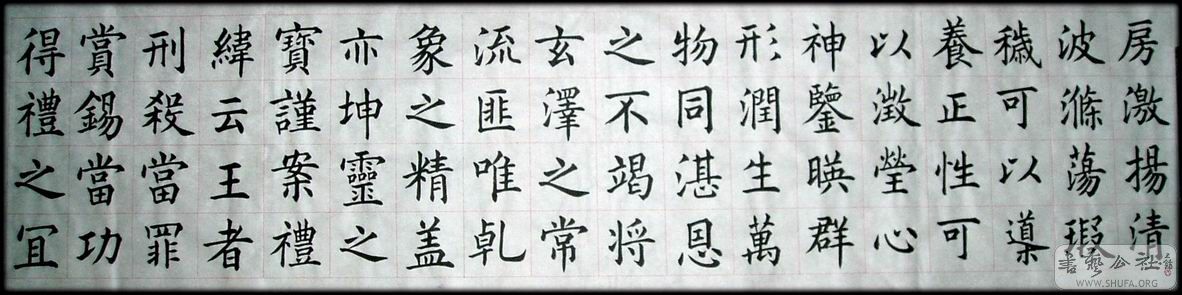 房激揚清
波滌蕩瑕
穢可以導
養正性可
以澂瑩心
神鑒暎群
形潤生萬
物同湛恩
之不竭将
玄澤之常
流匪唯乹
象之精盖
亦坤靈之
寶謹案禮
緯云王者
刑殺當罪
賞錫當功
得禮之宜
書藝公社
WWW.SHUFA.ORG